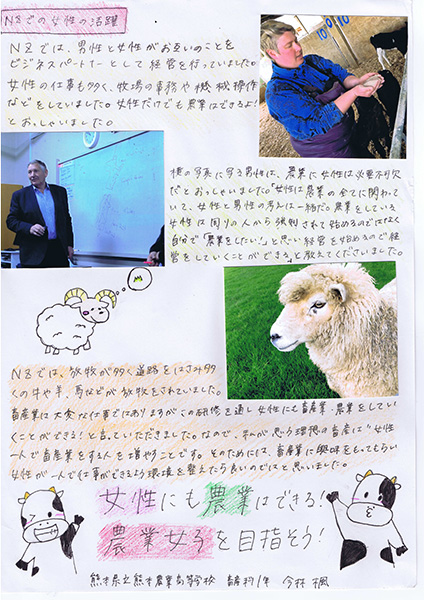 NZでの女性の活躍
NZでは、男性と女性がお互いのことを
ビジネスパートナーとして経営を行っていました。
女性の仕事も多く、牧場の事務や機械操作
などをしていました。女性だけでも農業はできるよ!
とおっしゃいました。
横の写真に写る男性は、農業に女性は必要不可欠
だとおっしゃいました。「女性は農業の全てに関わって
いて、女性と男性の考えは一緒だ。農業をしている
女性は周りの人から強制されて始めるのではなく
自分で「農業をしたい!」と思い経営を始めるので経
営をしていくことができる」と教えてくださいました。
NZでは、放牧が多く道路をはさみ多
くの牛や羊、馬などが放牧をされていました。
畜産業は大変な仕事ではありますがこの研修を通し女性にも畜産業・農業をしてい
くことができる!と言っていただきました。なので、私が思う理想の畜産は"女性
一人で畜産業をする人を増やすことです。そのためには、畜産業に興味をもってもらい
女性が一人で仕事ができるよう環境を整えたら良いのではと思いました。
女性にも農業はできる!
農業女子を目指そう!
熊本県立熊本農業高等学校 畜産科1年 今村 楓